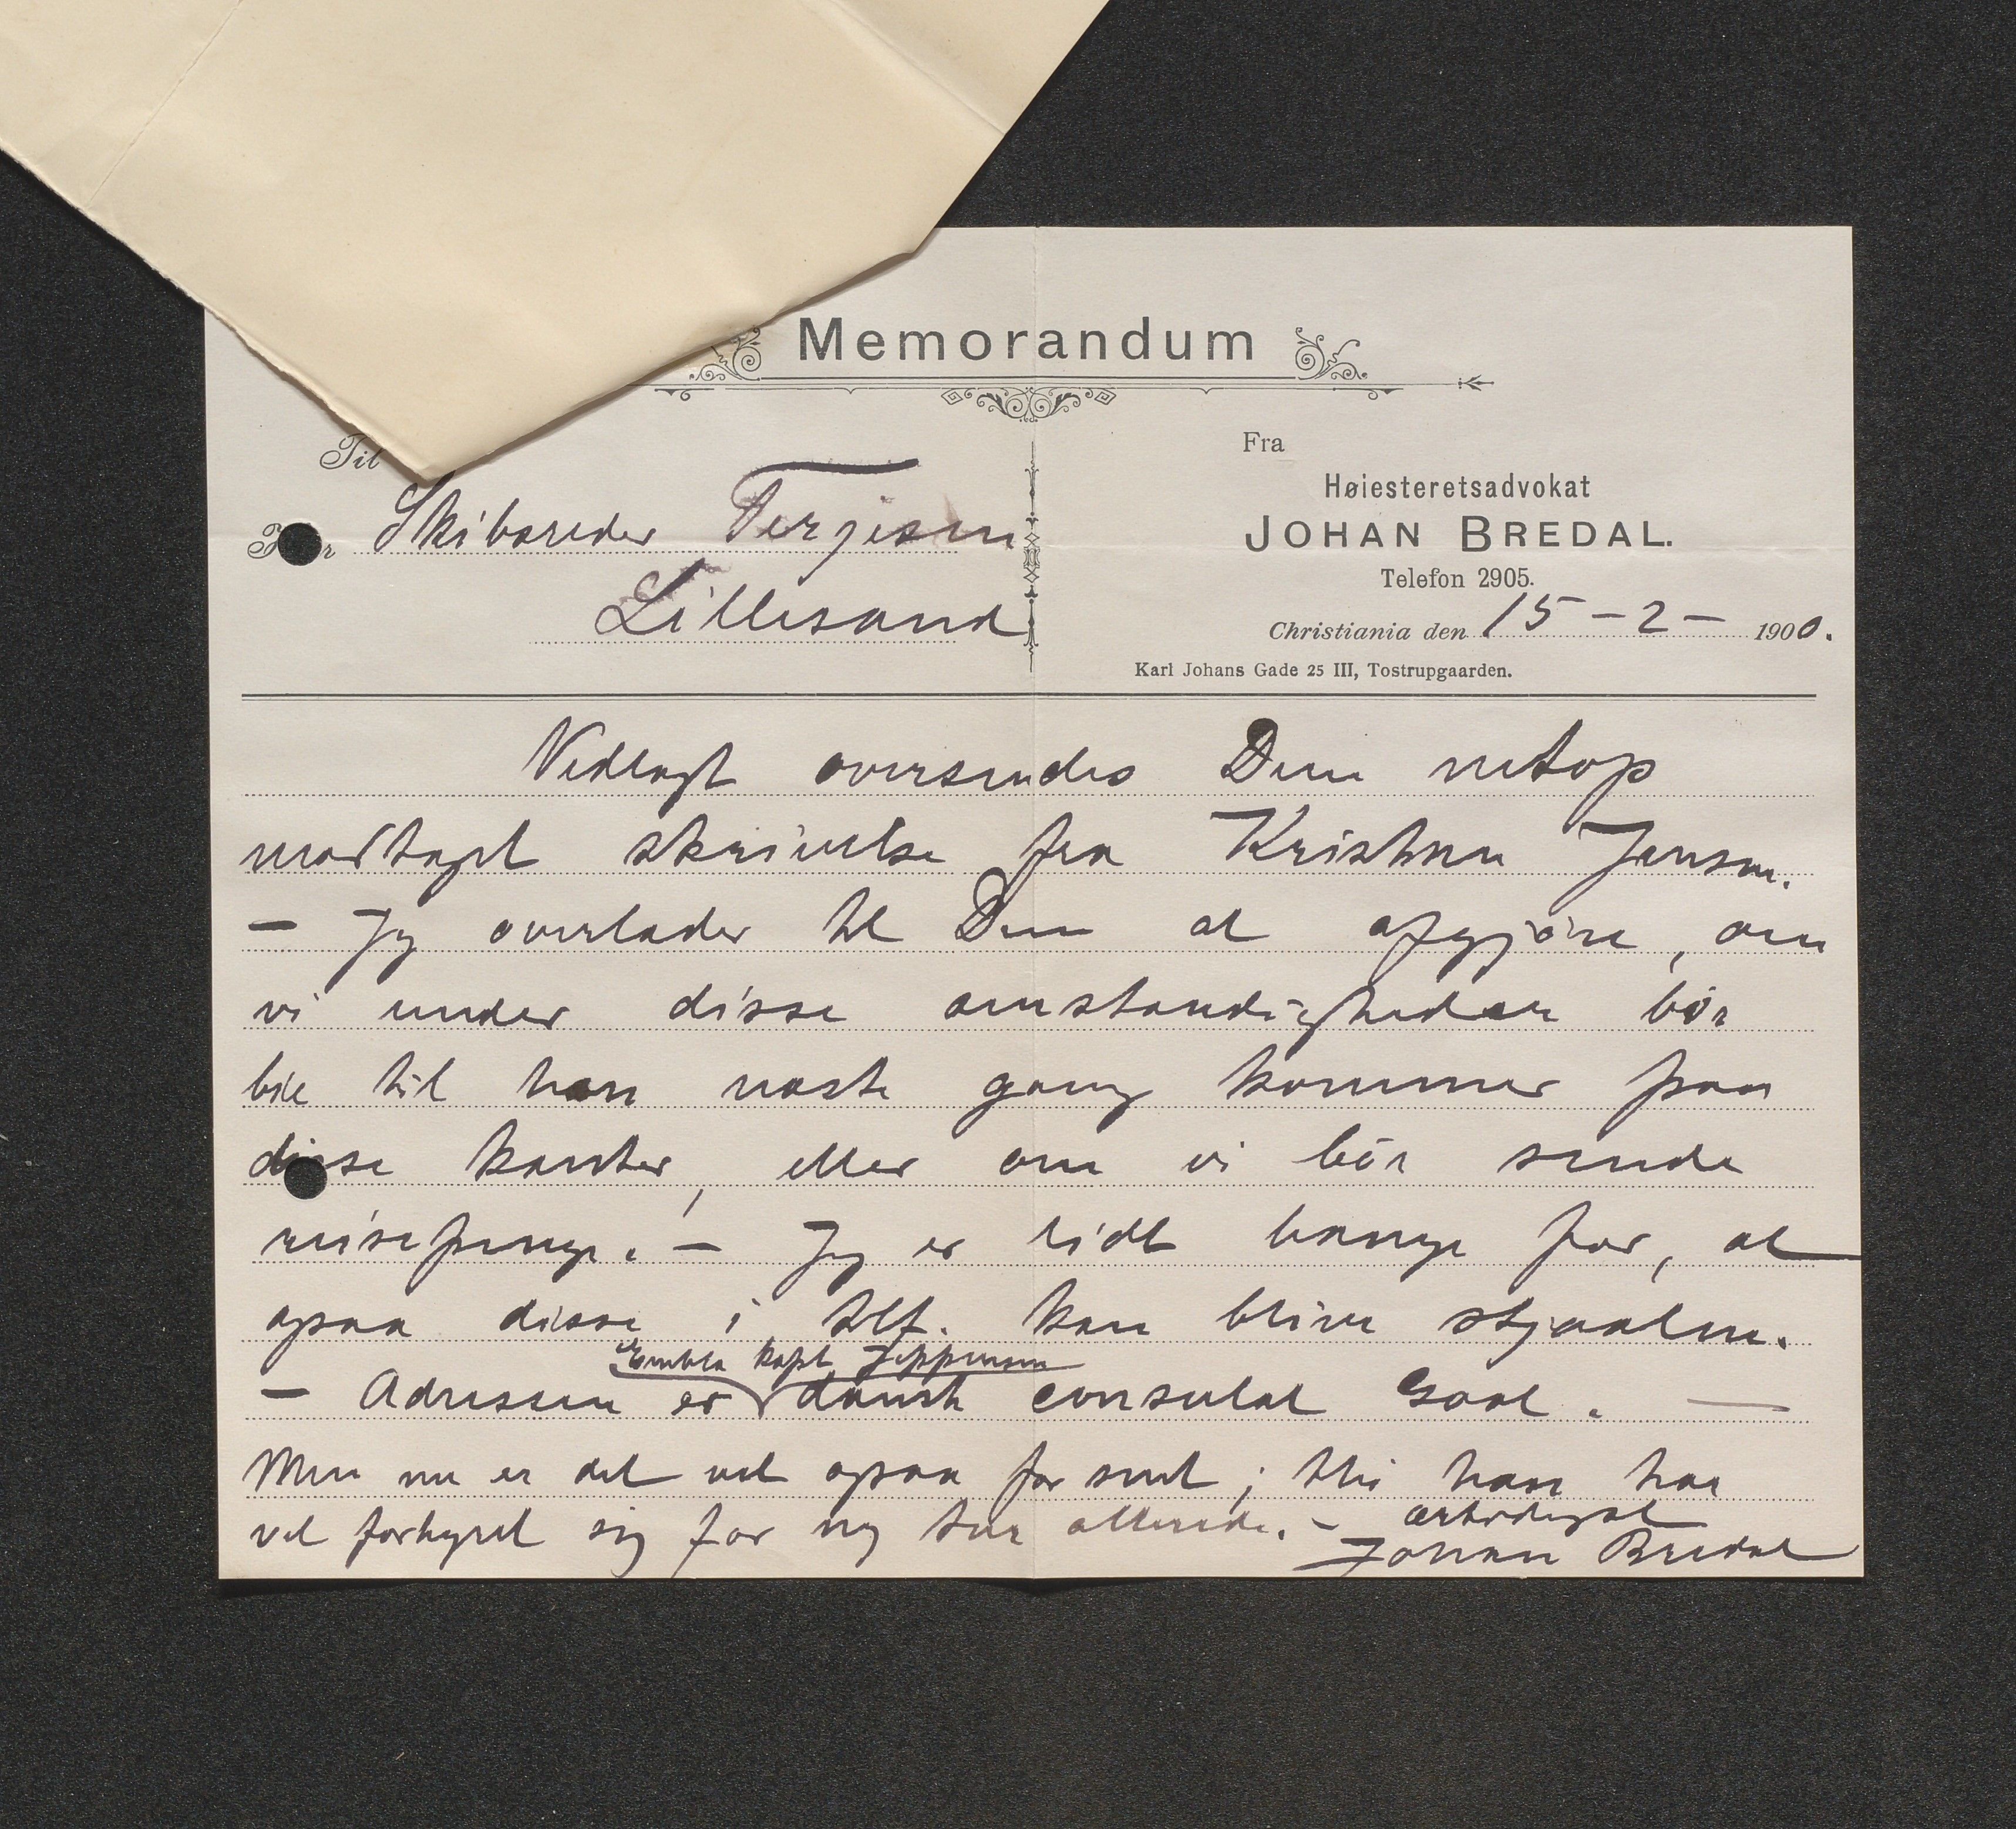 Memorandum
Til
Herr Skibsreder Terjesen
Lillesand
Fra
Høiesteretsadvokat
JOHAN BREDAL.
Telefon 2905.
Christiania den 15-2- 1900.
Karl Johans Gade 25 III, Tostrupgaarden.
Vedlagt oversendes Dem netop
modtaget skrivelse fra Kristian Jensen.
– Jeg overlader til Dem at afgjøre, om
vi under disse omstændigheder bør
bie til han næste gang kommer paa
disse kanter, eller om vi bør sende
reisepenge. – Jeg er lidt bange for, at
ogsaa disse i tilf. kan blive stjaalne.
Embla kapt Jeppesen
– Adressen er dansk consulat Goole. –
Men nu er det vel ogsaa for sent; thi han har
vel forhyret sig for ny tur allerede. – ærbødigst
Johan Bredal